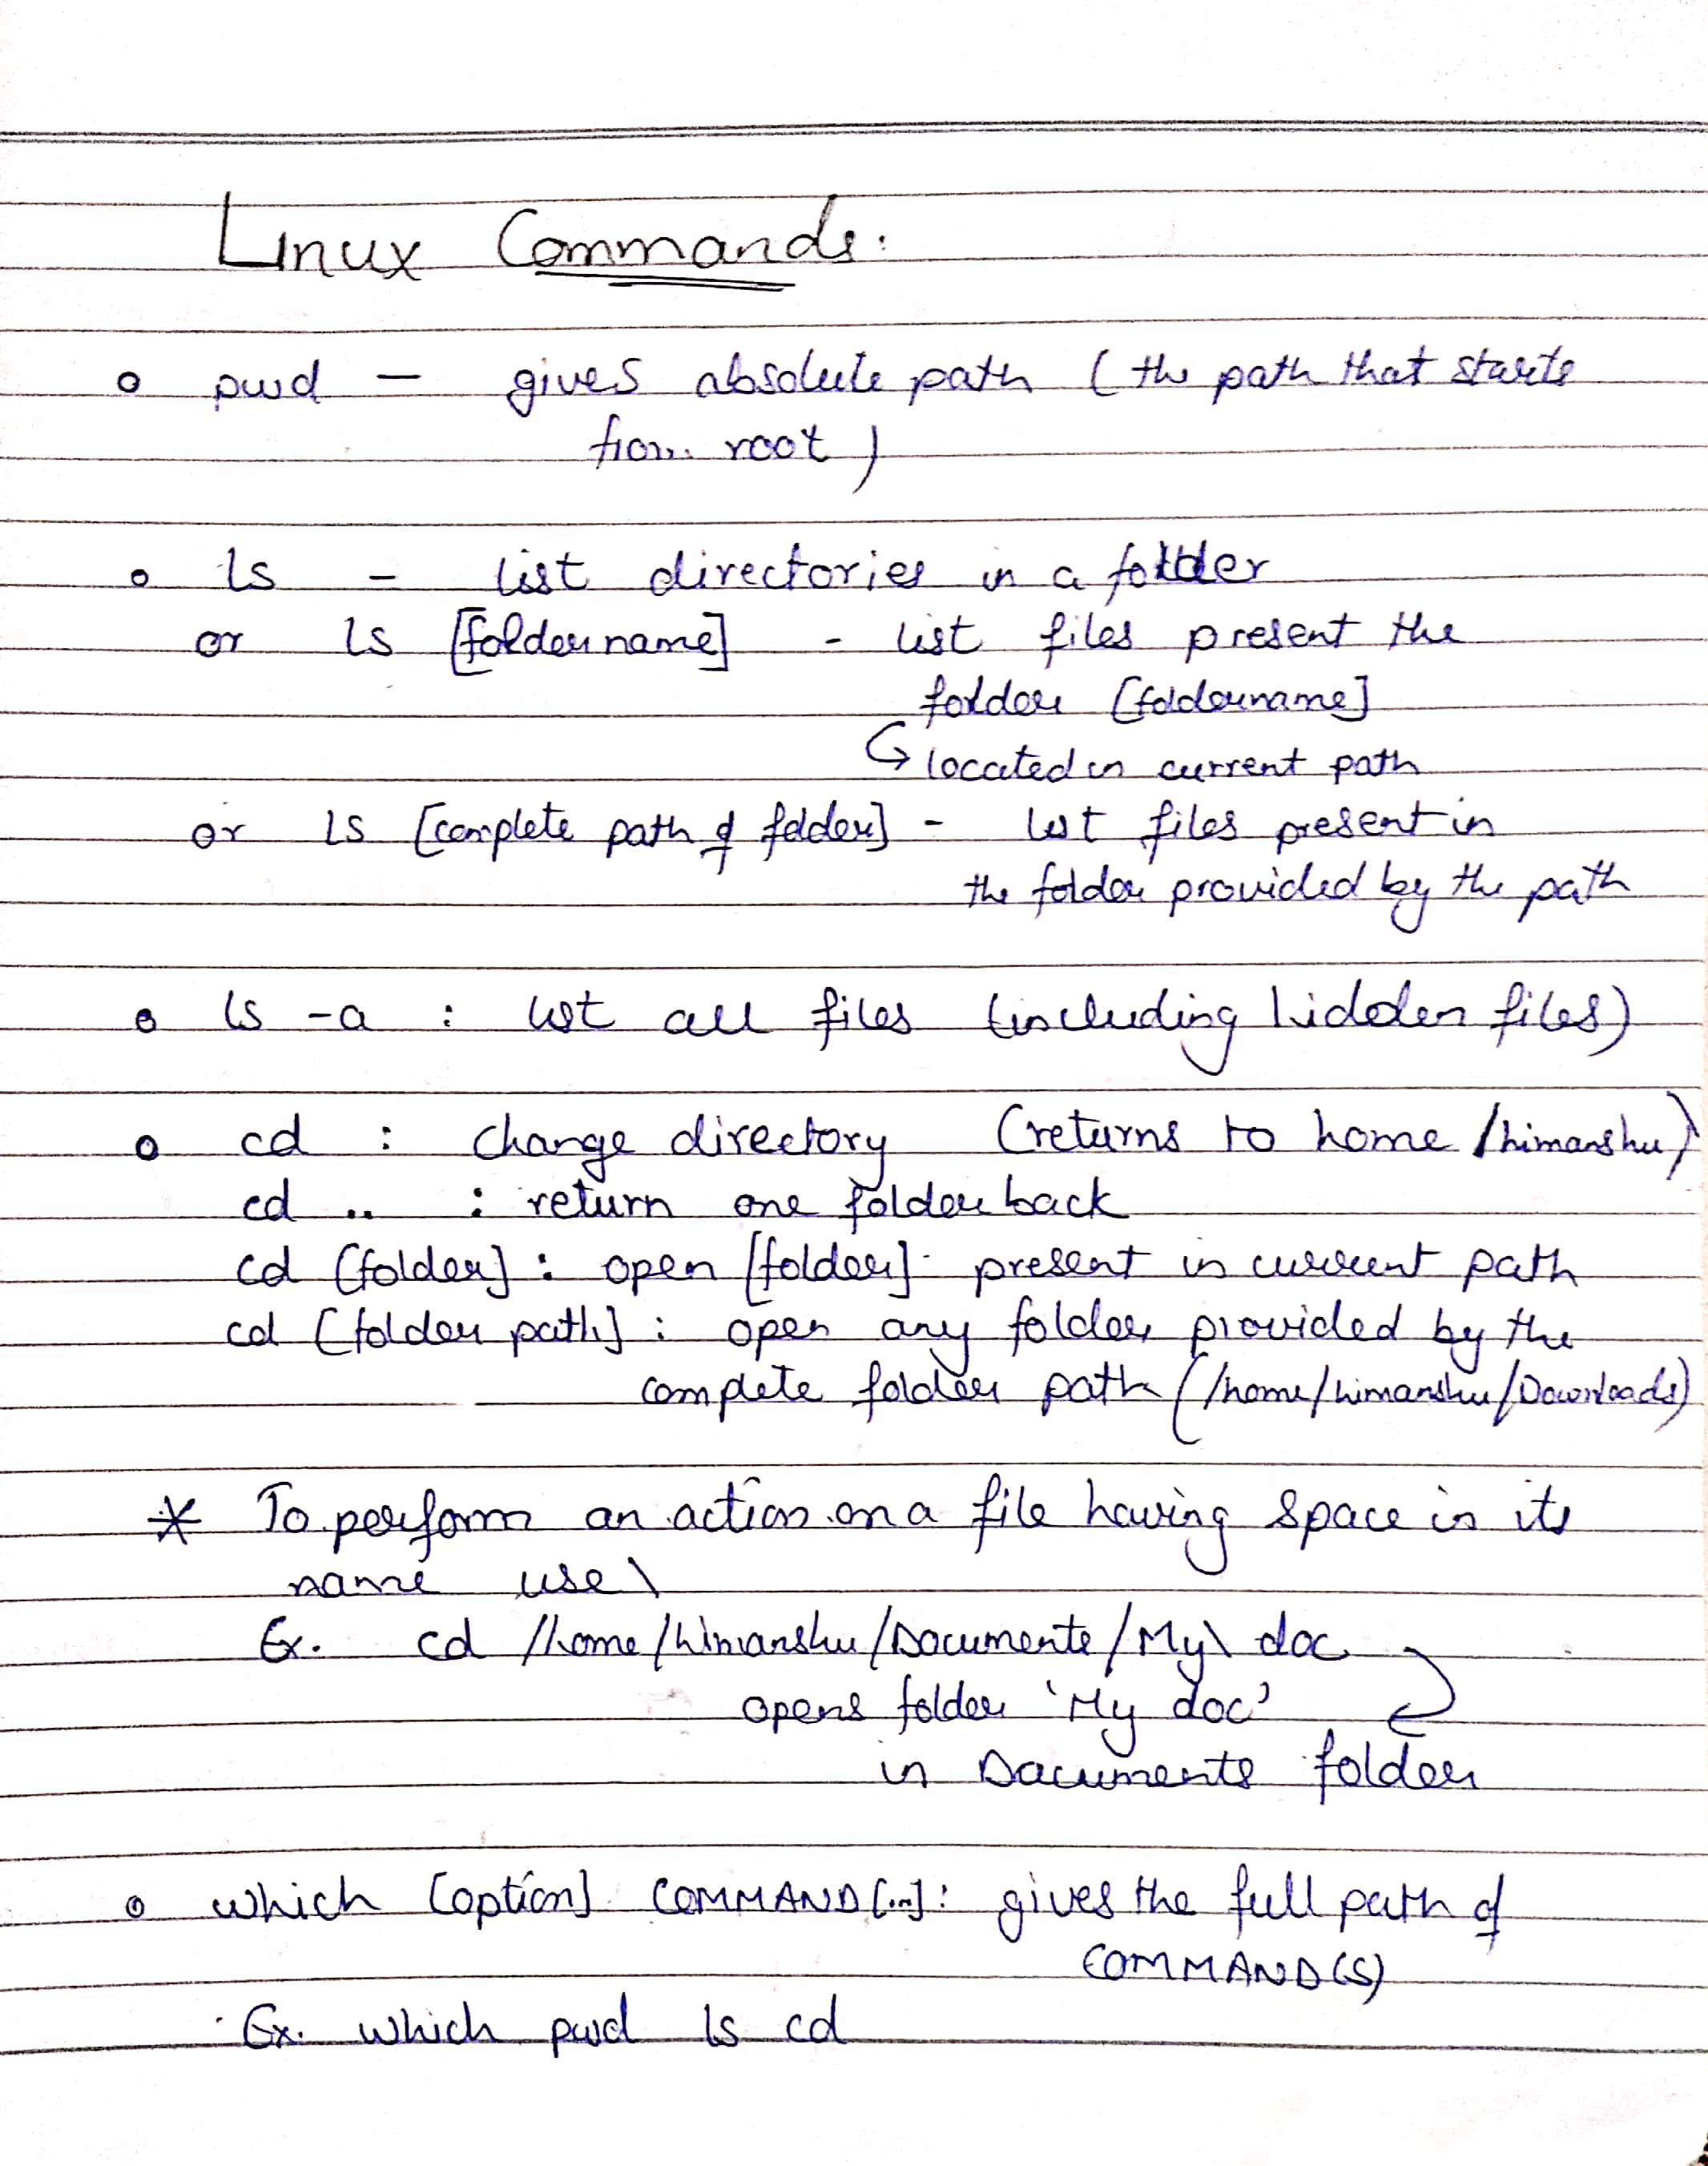 Linux Commands:
o pwd — gives absolute path (the path that starts
from root)
o ls - list directories in a folder
or ls [foldername] - list files present the
folder [foldername]
↳ located in current path
or ls [complete path of folder] - list files present in
the folder provided by the path
o ls -a : list all files (including hidden files)
o cd : change directory (returns to home /himanshu)
cd .. : return one folder back
cd [folder] : open [folder] present in current path
cd [folder path] : open any folder provided by the
complete folder path (/home/himanshu/Downloads)
* To perform an action on a file having space in its
name use \
Ex. cd /home/himanshu/Documents/My\ doc
opens folder 'My doc'
in Documents folder
o which [option] COMMAND[...]: gives the full path of
COMMAND(S)
Ex. which pwd ls cd